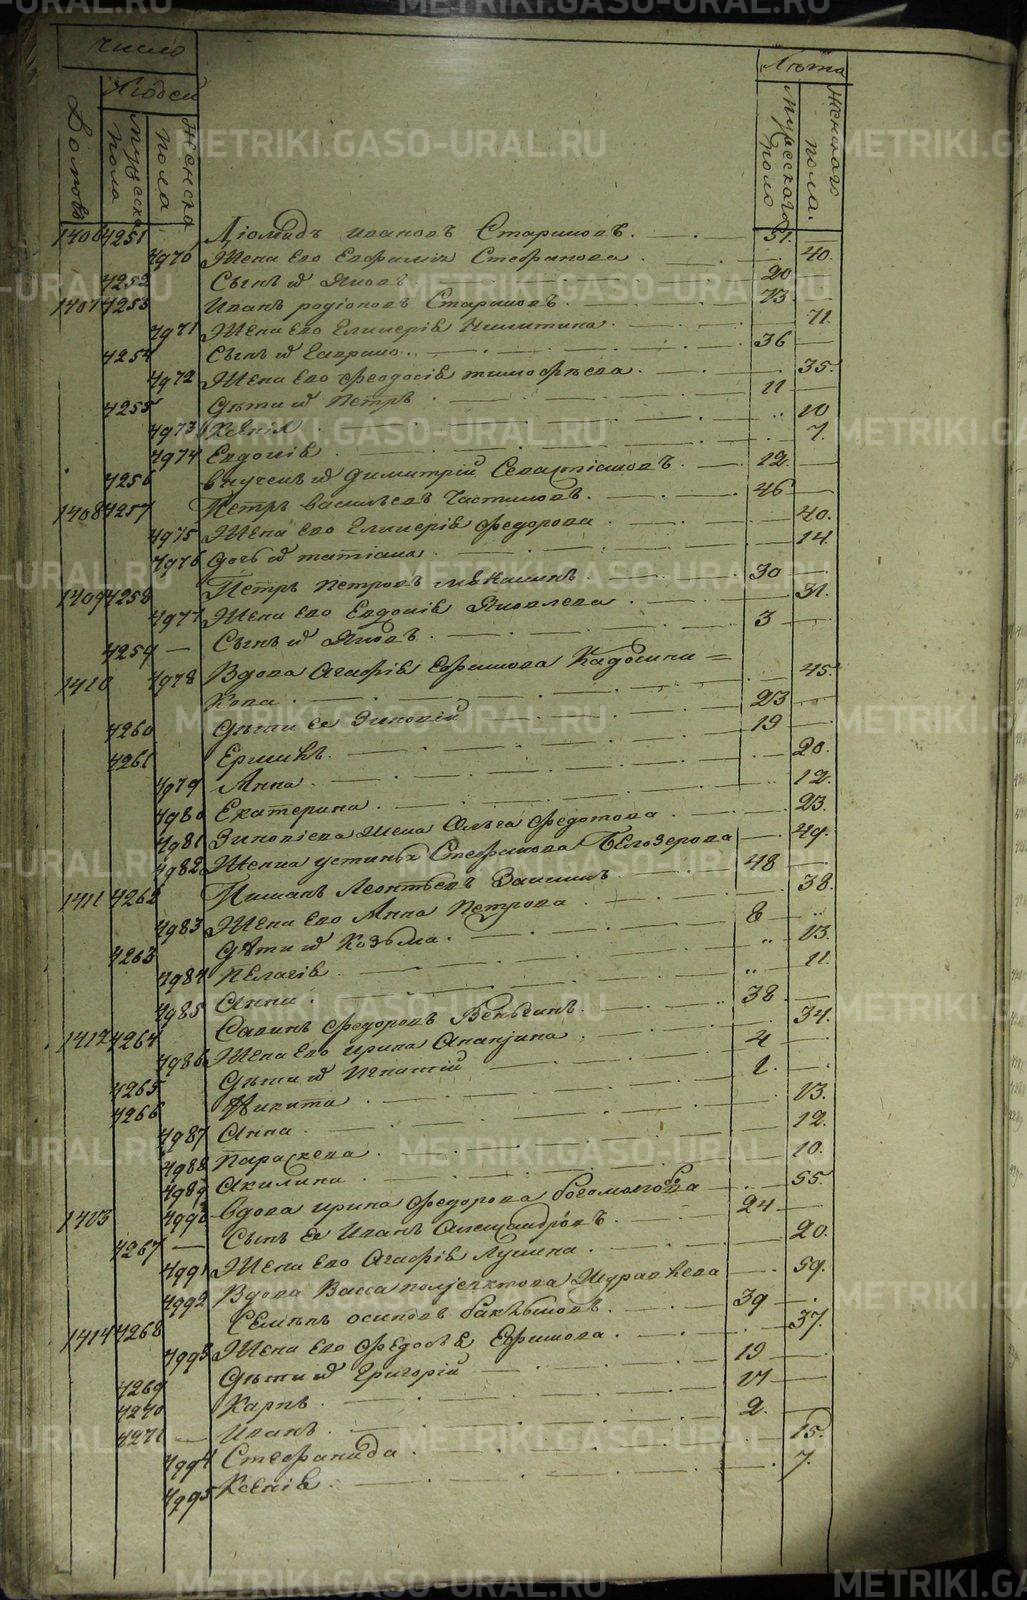 число
Людей
Лѣта
Домовъ
мужеска пола
женска пола
мужескаго пола
женскаго пола.
1406 4251 Діомидъ Ивановъ Старцовъ. 51.
4970 Жена Ево Евфимія Стефанова 40.
4252 Сынъ и Яковъ 20
1407 4253 Иванъ родіоновъ Старцовъ. 73
4971 Жена Ево Гликерія Никитина 71.
4254 Сынъ и Гаврило.. 36
4972 Жена Ево Феодосія тимофѣева. 35.
4255 Дѣти и Петръ 11
4973 Ксенія 10
4974 Евдокія 7.
4256 внучекъ и Димитрій Севастіановъ. 12.
1408 4257 Петръ васильевъ Частиковъ. 46
4975 Жена Ево Гликерія Федорова 40.
4976 дочь и татіана. 14
1409 4258 Петръ Петровъ 30
4977 Жена Ево Евдокія Яковлева 31.
4259 Сынъ и Яковъ 3
1410 4978 Вдова Агафія Ефимова Кадочни= 45.
кова
4260 Дѣти Ея Зиновій 23
4261 Ермилъ. 19
4979 Анна 20.
4980 Екатерина 12.
4981 Зиновіева Жена Ольга Федотова 23.
4982 Жепка устинья Стефанова Бѣлозерова 49.
1411 4262 Иванъ Леонтьевъ Заикинъ 48
4983 Жена Ево Анна Петрова 38.
4263 Дѣти и Козьма. 8
4984 Пелагія 13.
4985 Анна. 11.
1412 4264 Савинъ Федоровъ 38
4986 Жена Ево ирина Ананьина 34.
4265 Дѣти и Игнатій 4
4266 Никита 1.
4987 Анна 13.
4988 Параскева 12.
4989 Акилина 10.
1413 4990 вдова ирина Федорова богомолова 55.
4267 Сынъ Ея Иванъ Александровъ 24
4991 Жена Ево Агафія Лукина 20.
4992 Вдова Васса полуектова Журавлева 59.
1414 4268 Семенъ осиповъ 39
4993 Жена Ево Федосья Ефимова 37.
4269 Дѣти и Григорій 19
4270 Карпъ. 17
4271 Иванъ. 2.
4994 Стефанида 15.
4995 Ксенія 7.
METRIKI.GASO-URAL.RU